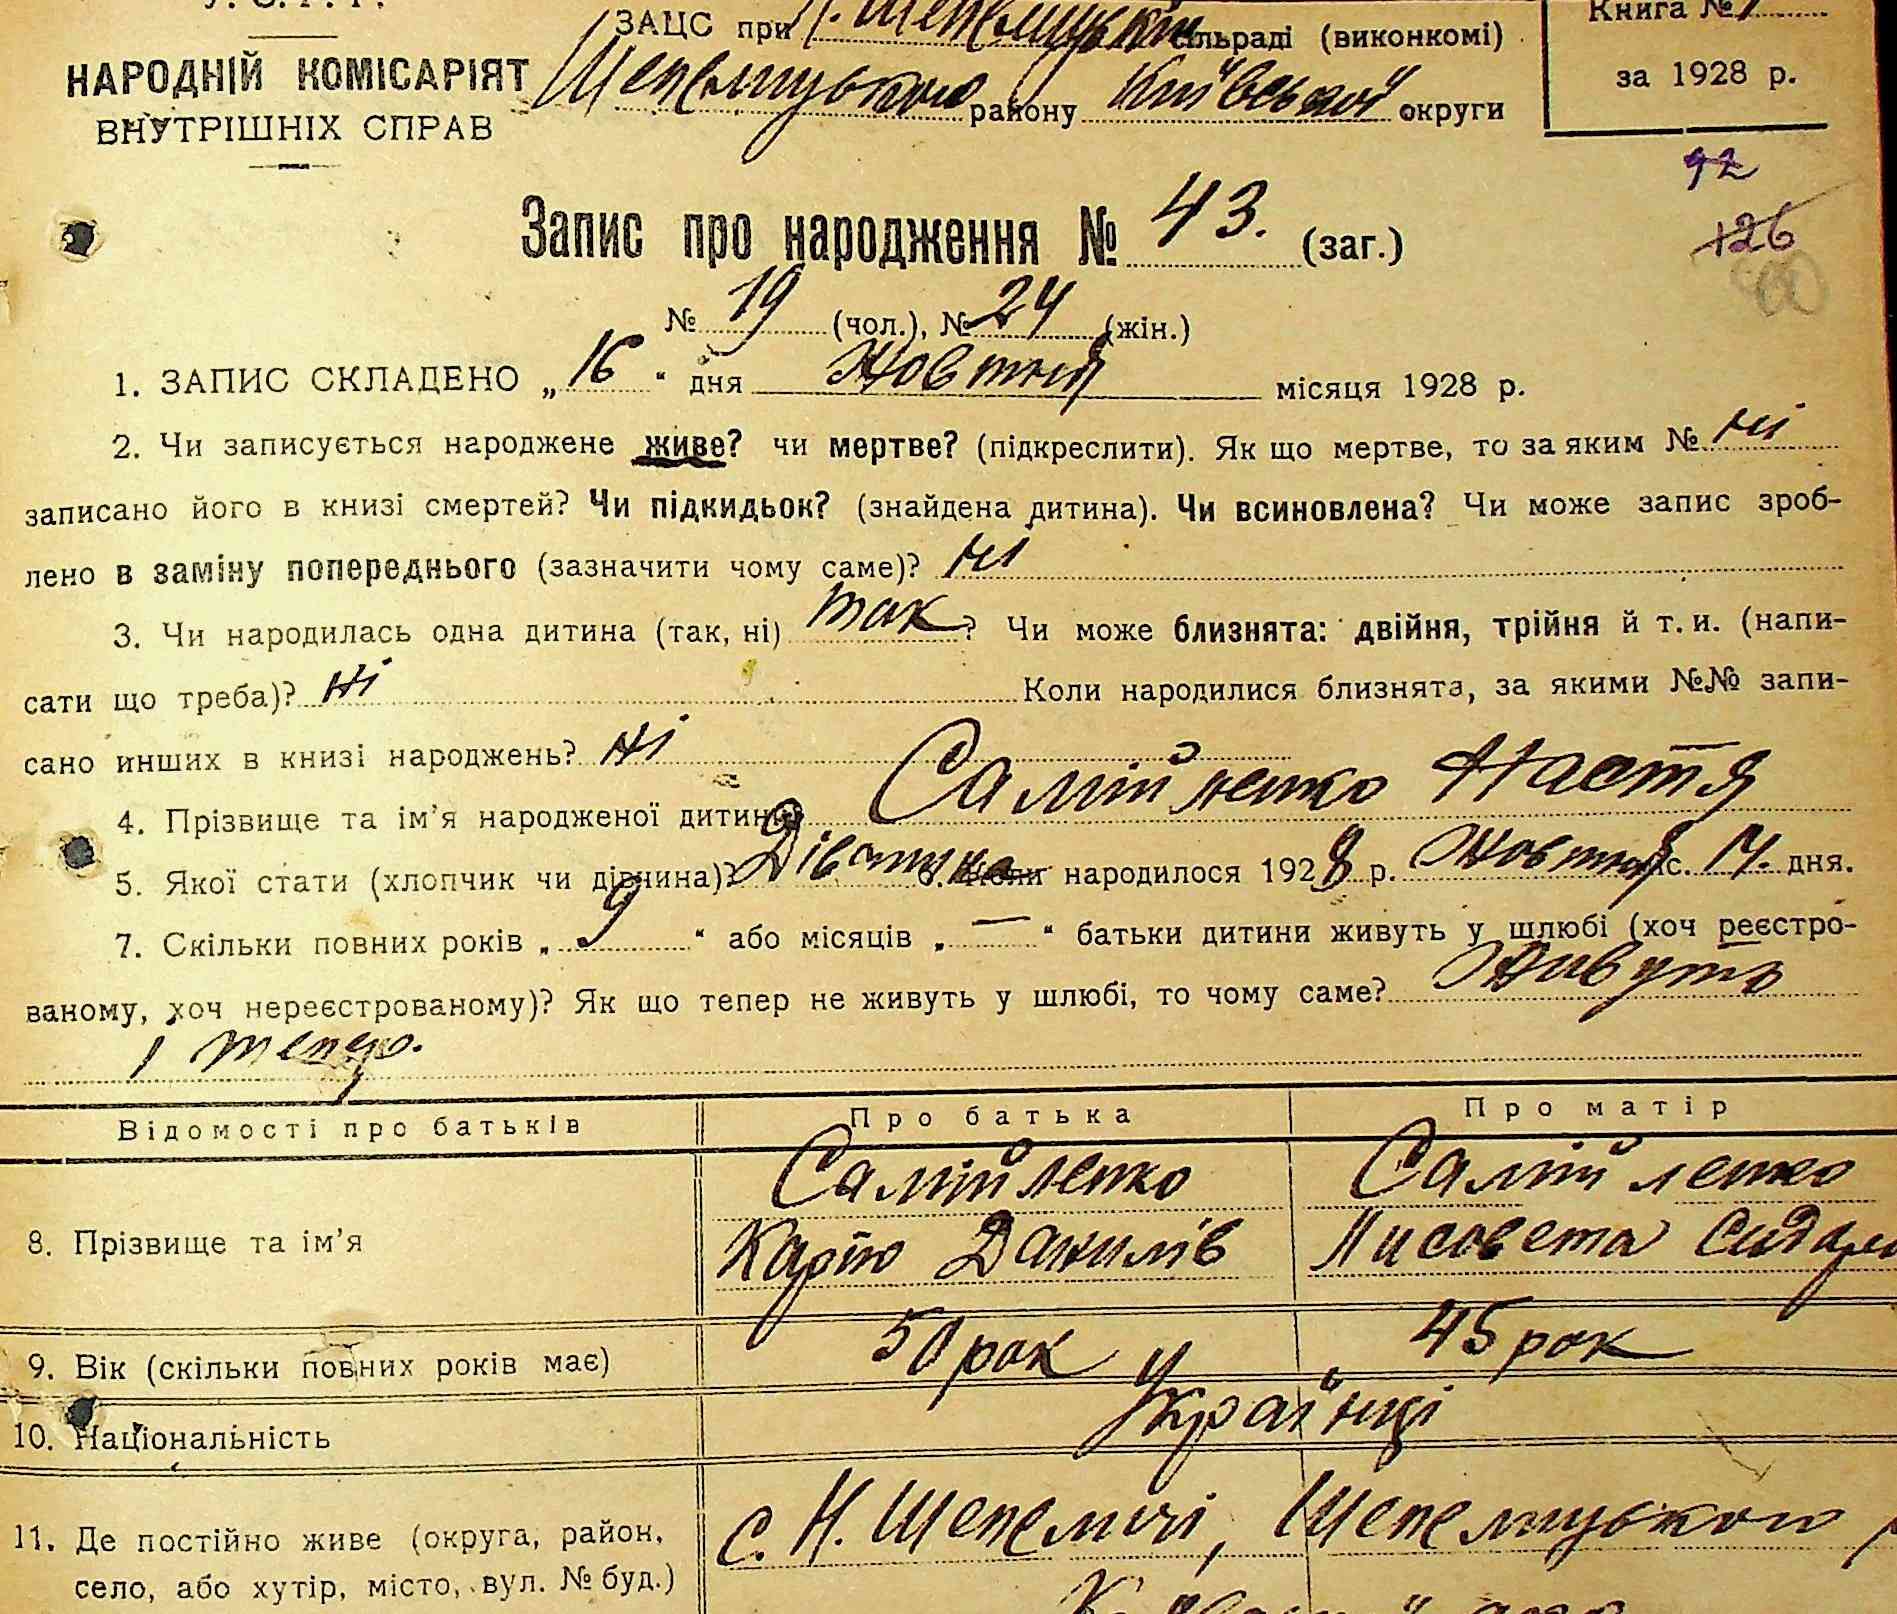 У. С. Р. Р.
ЗАЦС при Н. Шепелицькій сільраді (виконкомі)
Книга №
НАРОДНІЙ КОМІСАРІЯТ
Шепелицького району Київської округи
за 1928 р.
ВНУТРІШНІХ СПРАВ
92
Запис про народження № 43. (заг.)
126
№ 19 (чол.), № 24 (жін.)
1. ЗАПИС СКЛАДЕНО „ 16 “ дня Жовтня місяця 1928 р.
2. Чи записується народжене живе? чи мертве? (підкреслити). Як що мертве, то за яким № ні
записано його в книзі смертей? Чи підкидьок? (знайдена дитина). Чи всиновлена? Чи може запис зроб-
лено в заміну попереднього (зазначити чому саме)? ні
3. Чи народилась одна дитина (так, ні) так ? Чи може близнята: двійня, трійня й т. и. (напи-
сати що треба)? ні Коли народилися близнята, за якими №№ запи-
сано инших в книзі народжень? ні
4. Прізвище та ім’я народженої дитини Самійленко Настя
5. Якої стати (хлопчик чи дівчина)? Дівчинка 6. Коли народилося 1928 р. Жовтня с. 14. дня.
7. Скільки повних років „ 9 “ або місяців „ — “ батьки дитини живуть у шлюбі (хоч реєстро-
ваному, хоч нереєстрованому)? Як що тепер не живуть у шлюбі, то чому саме? Живуть
і тепер.
Відомості про батьків Про батька Про матір
Самійленко Самійленко
8. Прізвище та ім’я Данилів Лисовета
9. Вік (скільки повних років має) 50 рок 45 рок
10. Національність Українці
11. Де постійно живе (округа, район, с. Н. Шепеличі, Шепелицького р
село, або хутір, місто, вул. № буд.)